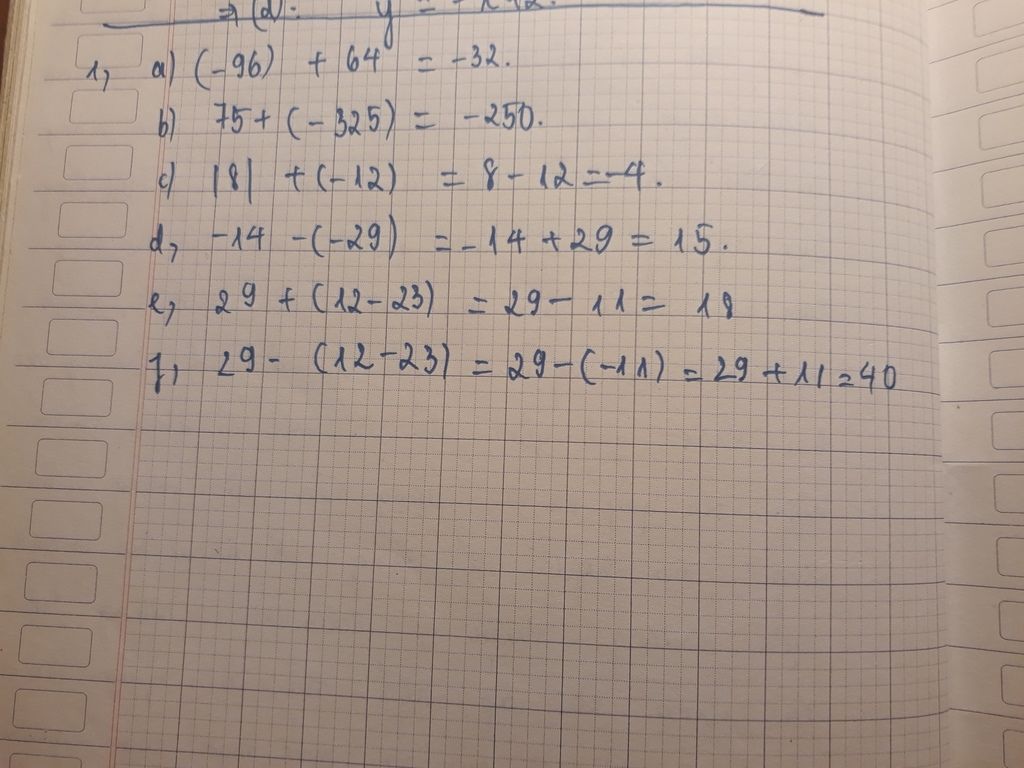 1, a) (-96) + 64 = -32.
b) 75 + (-325) = -250.
c) |8| + (-12) = 8 - 12 = -4.
d, -14 - (-29) = -14 + 29 = 15.
e, 29 + (12 - 23) = 29 - 11 = 18
f, 29 - (12 - 23) = 29 - (-11) = 29 + 11 = 40